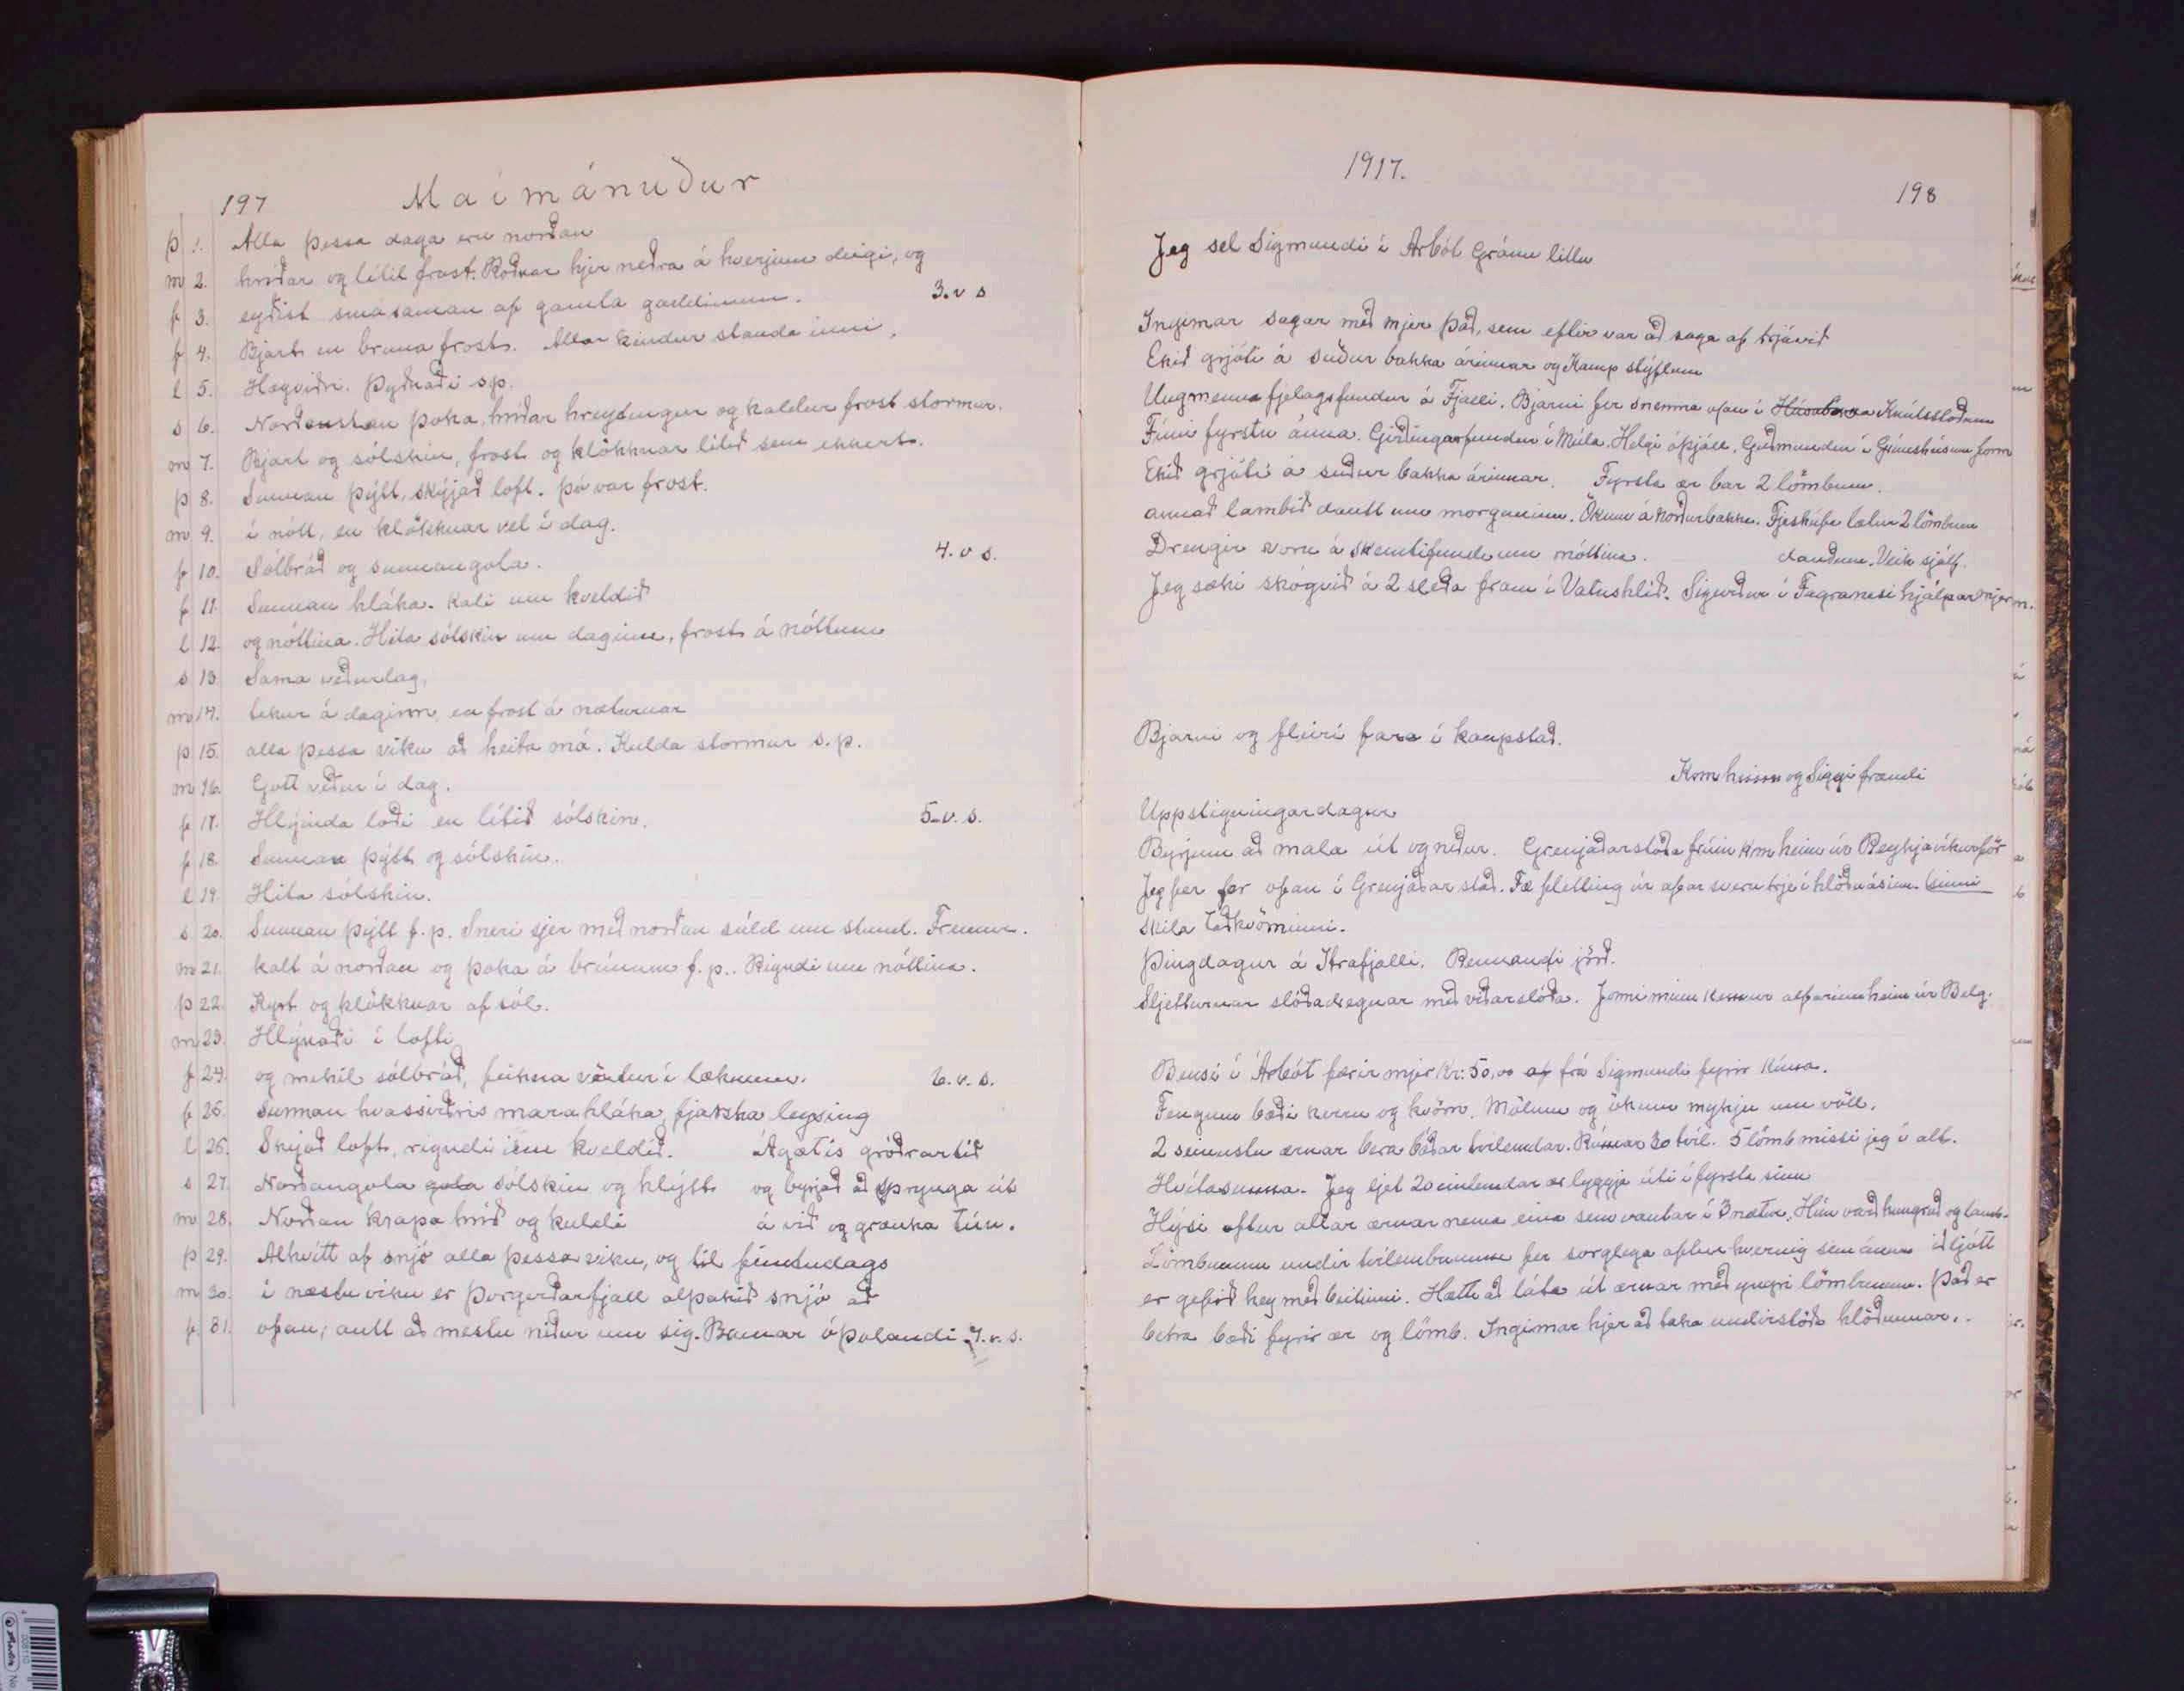 197 Maímánuður
þ 1. Alla þessa daga eru norðan
m 2. hríðar og lítil frost. Roðnar hjer neðra á hverjum deigi, og
f 3. eyðist smásaman af gamla gaddinum. 3. v s
f 4. Bjart en bruna frost. Allar kindur standa inni.
l 5. Hægviðri. Þyknaði s.p.
s 6. Norðaustan þoka, hríðar hreytingur og kaldur frost stormur.
m 7. Bjart og sólskin, frost og klökknar lítið sem ekkert.
þ 8. Sunnan þýtt, skýjað loft. Þó var frost.
m 9. í nótt, en klökknar vel í dag.
f 10. Sólbráð og sunnangola. 4. v s.
f 11. Sunnan hláka. Kali um kveldið
l 12. og nóttina. Hita sólskin um daginn, frost á nóttum
s 13. Sama veðurlag,
m 14. tekur á daginn, en frost á næturnar
þ 15. alla þessa viku að heita má. Kulda stormur s.p.
m 16. Gott veður í dag.
f 17. Hlýinda loði en lítið sólskin. 5. v. s.
f 18. Sunnan þýtt og sólskin.
l 19. Hita sólskin.
s 20. Sunnan þýtt f.p. Sneri sjer með norðan súld um stund. Fremur.
m 21. kalt á norðan og þoka á brúnum f.p.. Rigndi um nóttina.
þ 22. Kyrt og klökknar af sól.
m 23. Hlýnaði í lofti
f 24. og mikil sólbráð, feikna vöxtur í læknum. 6. v. s.
f 25. Sunnan hvassviðris mara hláka, fjaska leysing
l 26. Skýjað loft, rigndi um kveldið. Ágætis gróðrartíð
s 27. Norðangola gola sólskin og hlýtt og byrjað að sprynga út
m 28. Norðan krapa hríð og kuldi á við og grænka tún.
þ 29. Alhvítt af snjó alla þessa viku, og til fimtudags
m 30. í næstu viku er Þorgerðarfjall alþakið snjó að
f 31. ofan; autt að mestu niður um sig. Brunar óþolandi 7. v. s.
1917.
198
Jeg sel Sigmundi í Árbót Gránu litlu
Ingimar sagar með mjer það, sem eftir var að saga af trjávið
Ekið grjóti á suður bakka árinnar og Kamp stýflum
Ungmenna fjelagsfundur á Fjalli. Bjarni fer snemma ofan í Húsabakka Knútsstöðum
Fimi fyrstu ánna. Girðingarfundur í Múla. Helgi á fjall. Guðmundur í Grímshúsum form
Ekið grjóti á suður bakka árinnar. Fyrsta ær bar 2 lömbum.
annað lambið dautt um morguninn. Ókum á Norðurbakka. Fjeskúfa lætur 2 lömbum
Drengir voru á skemtifundi um nóttina. dauðum. Veik sjálf.
Jeg sæki skógvið á 2 sleða fram í Vatnshlíð. Sigurður í Fagranesi hjálpar mjer m.
Bjarni og fleiri fara í kaupstað.
Kom hissum og Siggi frændi
Uppstigningardagur
Byrjum að mala út og niður. Grenjaðarstaða frúin kom heim úr Reykjavíkurför
Jeg fer for ofan í Grenjaðarstað. Fæ flétting úr afar sveru trje í hlöðuásinn. sinni
Skila taðkvörninni.
Þingdagur á Ytrafjalli. Rennandi jörð.
Sljetturnar slóðadregnar með viðarslóða. Jónni minn kemur alfarinn heim úr Belg.
Bensi í Árbót færir mjer Kr: 50,00 af frá Sigmundi fyrir Kúna.
Fengum bæði kerru og kvörn. Mölum og ökum mykju um völl.
2 seinustu ærnar bera báðar tvílembdar. Rúmar 30 tvíl. 5 lömb missi jeg í alt.
Hvítasunna. Jeg ljet 20 einlembdar ær lyggja úti í fyrsta sinn
Hýsi aftur allar ærnar nema eina sem vantar í 3 nætur. Hún varð hungruð og lamb-
Lömbunum undir tvílembunum fer sorglega aftur hvernig sem ánum ið ljótt
er gefið hey með beitinni. Hætti að láta út ærnar með yngri lömbunum. Það er
betra bæði fyrir ær og lömb. Ingimar hjer að taka undirstöðu hlöðunnar..